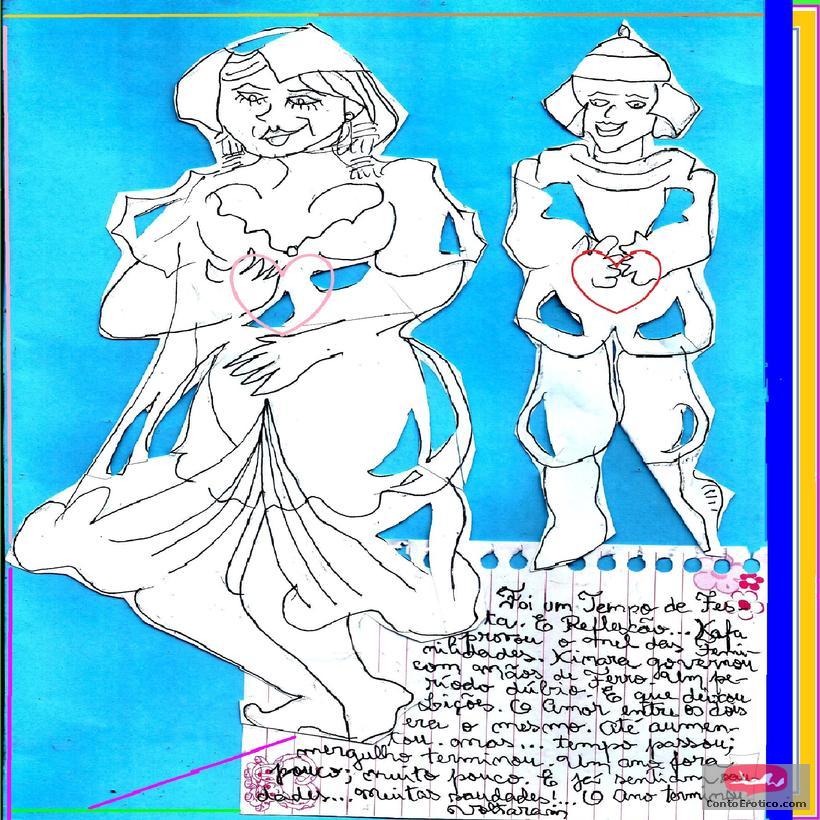 Foi um Tempo de Fes-
ta. E Reflexão... Kafa
provou o mel das Femi-
nilidades. Kimara governou
com mãos de Ferro, um pe-
ríodo dúbio. E que deixou
lições. O Amor entre os dois
era o mesmo. Até aumen-
tou. mas... tempo passou;
mergulho terminou. Um ano fora
pouco; muito pouco. E já sentiam sau-
dades... muitas saudades!... O Ano terminou
Voltaram
ContoErotico.com